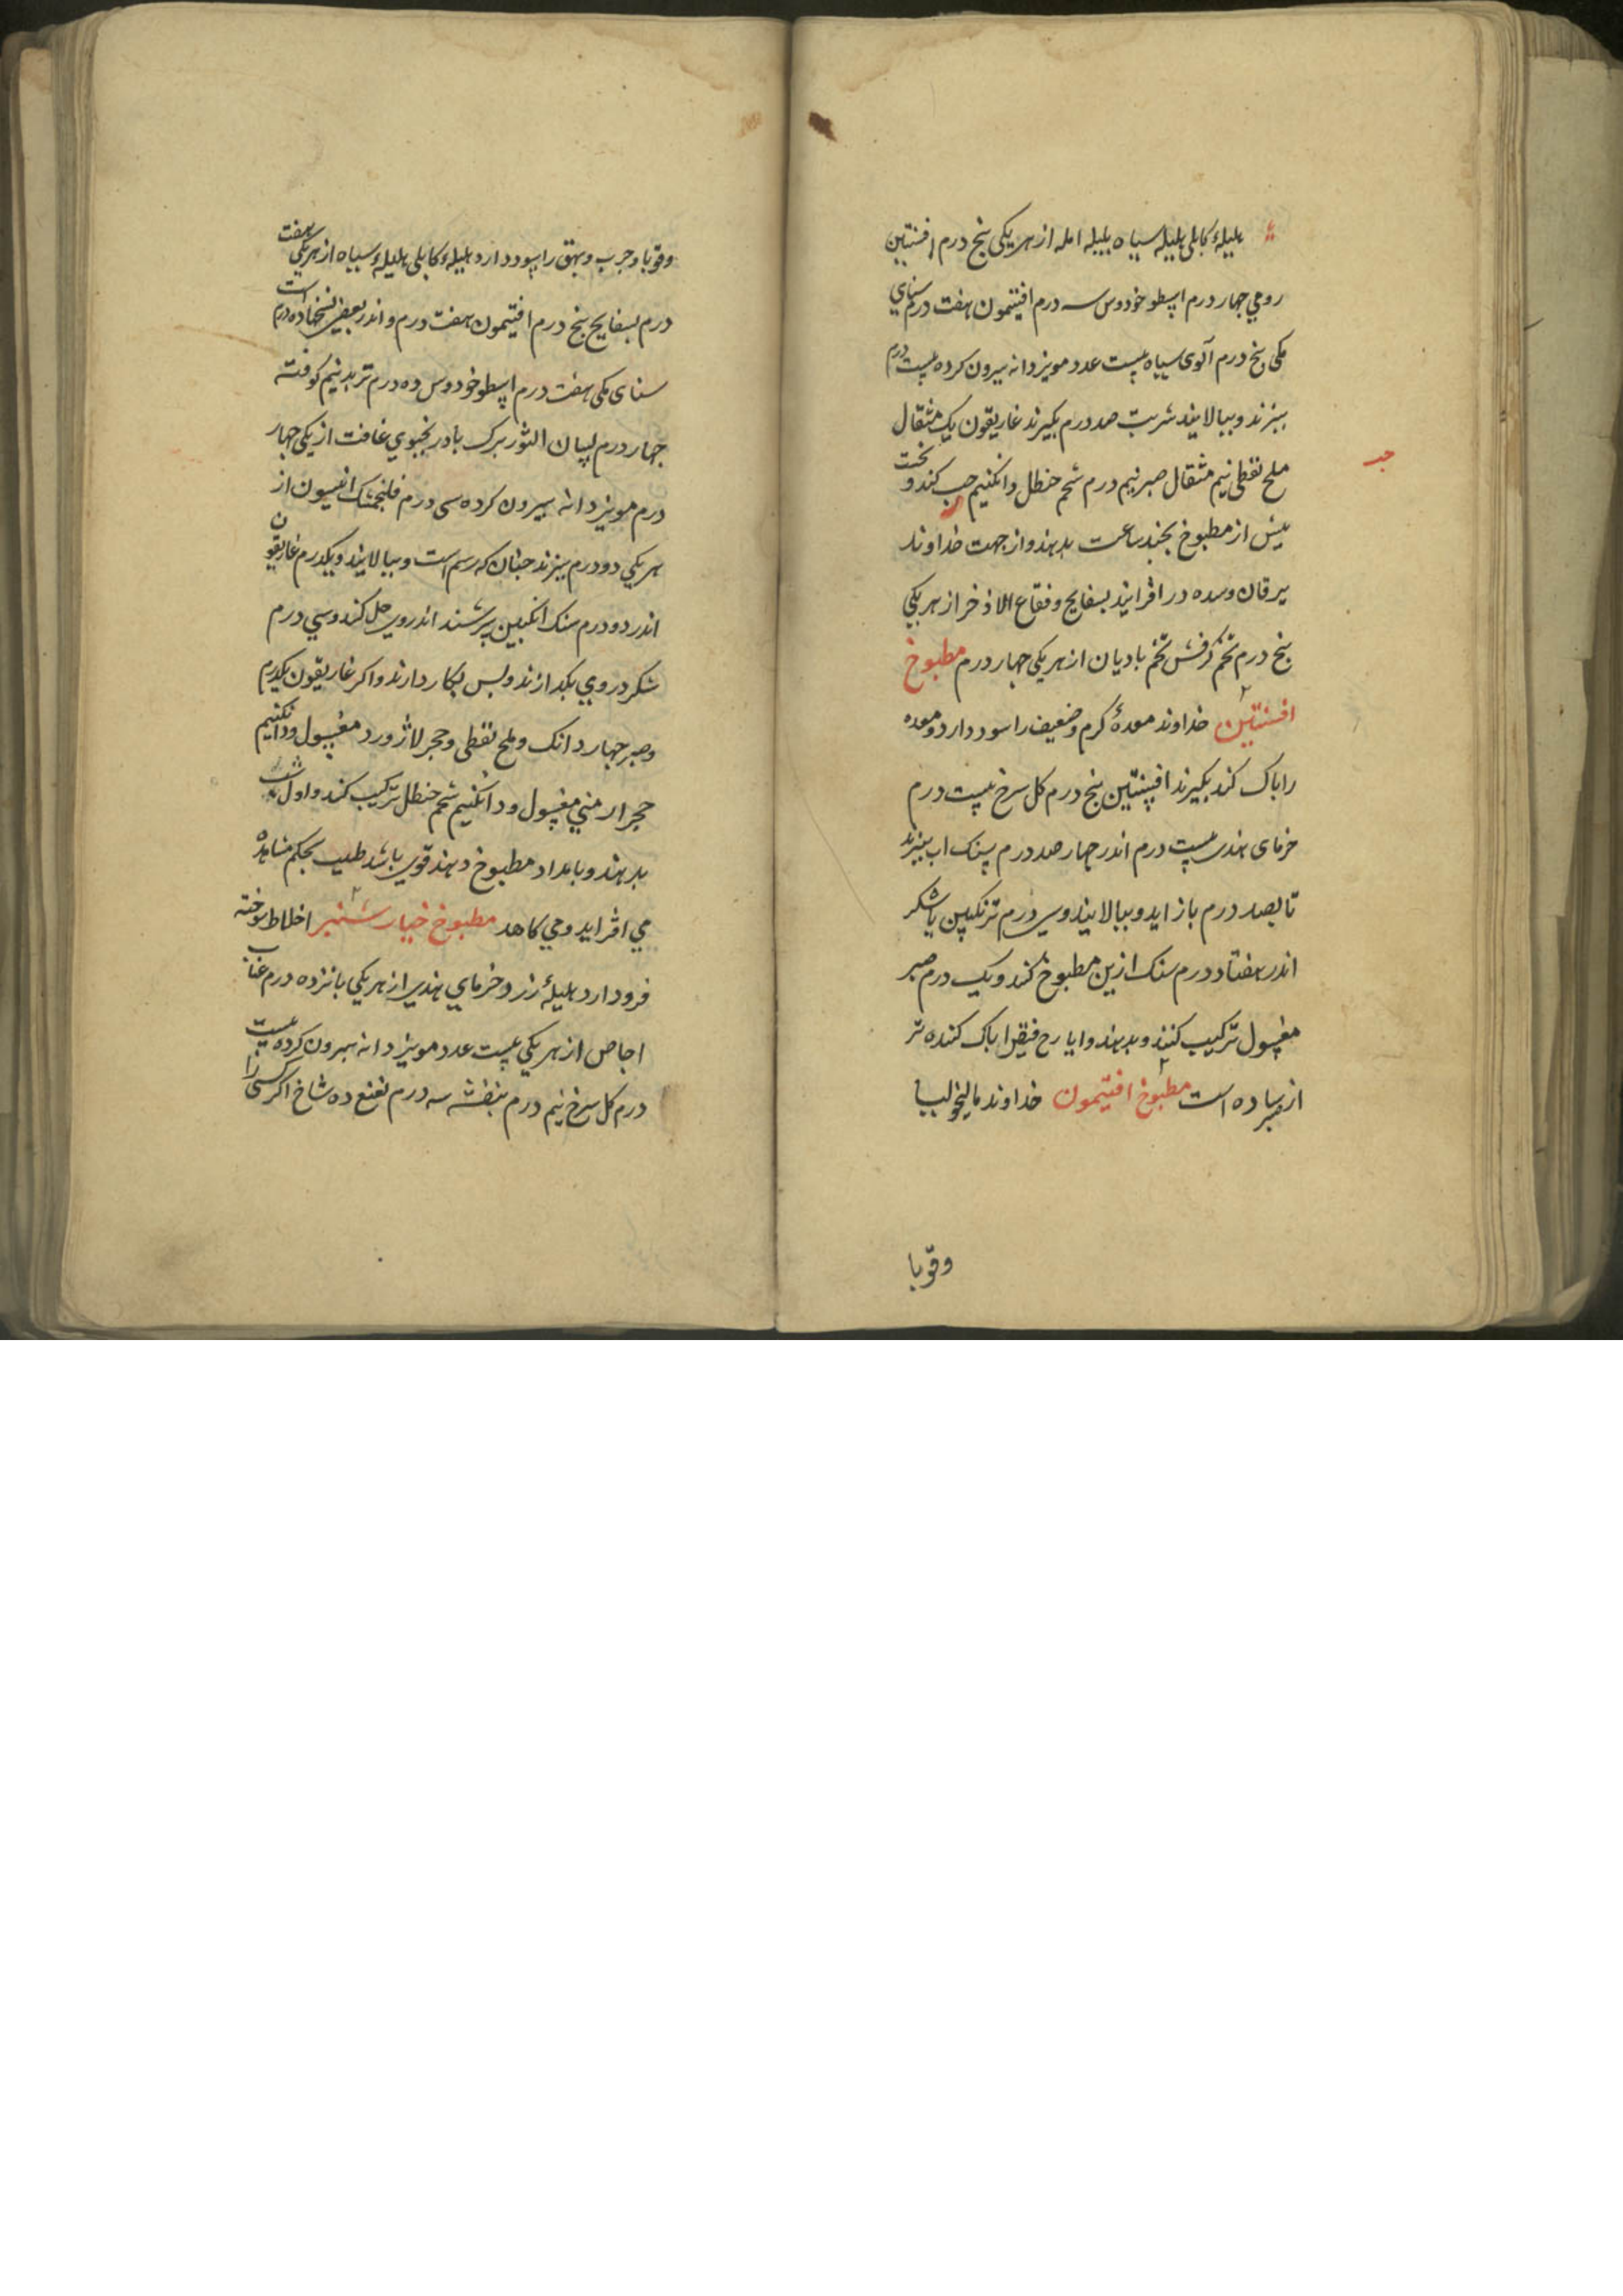 هلیلۀ کابلی هلیله سیاه بلیله امله از هر یکی پنج درم افسنتین
رومی جهار درم اسطوخودوس سه درم افتیمون هفت درم سنای
مکی پنج درم آلوی سیاه بیست عدد مویز دانه بیرون کرده بیست درم
ببزند و ببالایند شربت صد درم بکیرند غاریقون یک مثقال
ملح نفطی نیم مثقال صبر نیم درم شحم حنطل دانکنیم حب کند و نخست
حب
بیش از مطبوخ بجند ساعت بدهند و از جهت خداوند
یرقان و سده در افزایند بسفایج و فقاع الاذخر از هر یکی
پنج درم تخم کرفس تخم بادیان از هر یکی جهار درم مطبوخ
افسنتین خداوند معدۀ کرم و ضعیف را سود دارد و معده
را باک کند بکیرند افسنتین پنج درم کل سرخ بیست درم
خرمای هندی بیست درم اندر جهار صد درم سنک اب ببزند
تا بصد درم باز اید و ببالایند و سی درم ترنکبین یا شکر
اندر هفتاد درم سنک ازین مطبوخ کند و یک درم صبر
مغسول ترکیب کنند و بدهند و ایارج فیقرا باک کننده تر
از صبر ساده است مطبوخ افتیمون خداوند مالیخولیا
وقوبا
وقوبا و جرب و بهق را سود دارد هلیلۀ کابلی هلیلۀ سیاه از هر یکی هفت
درم بسفایج پنج درم افتیمون هفت درم و اندر بعضی نسخها ده درم است
سنای مکی هفت درم اسطوخودوس ده درم تربد نیم کوفته
جهار درم لسان الثور برک بادرنجبوی غافت از یکی جهار
درم مویز دانه بیرون کرده سی درم فلنجمشک انیسون از
هر یکی دو درم ببزند جنان که رسم است و ببالایند و یکدرم غاریقون
اندر دو درم سنک انکبین بسرشند اندروی حل کند و سی درم
شکر در وی بکدازند و بس بکار دارند و اکر غاریقون یکدرم
و صبر جهار دانک و ملح نفطی و حجر لاژورد مغسول و دانکنیم
حجر ارمنی مغسول و دانکنیم شحم حنطل ترکیب کند و اول شب
بدهند و بامداد مطبوخ دهند قوی باشد طبیب بحکم مشاهده
می افزاید و می کاهد مطبوخ خیار شنبر اخلاط سوخته
فرود ارد هلیلۀ زرد و خرمای هندی از هر یکی بانزده درم عناب
اجاص از هر یکی بیست عدد مویز دانه بیرون کرده بیست
درم کل سرخ نیم درم بنفشه سه درم نعنع ده شاخ اکر کسی را